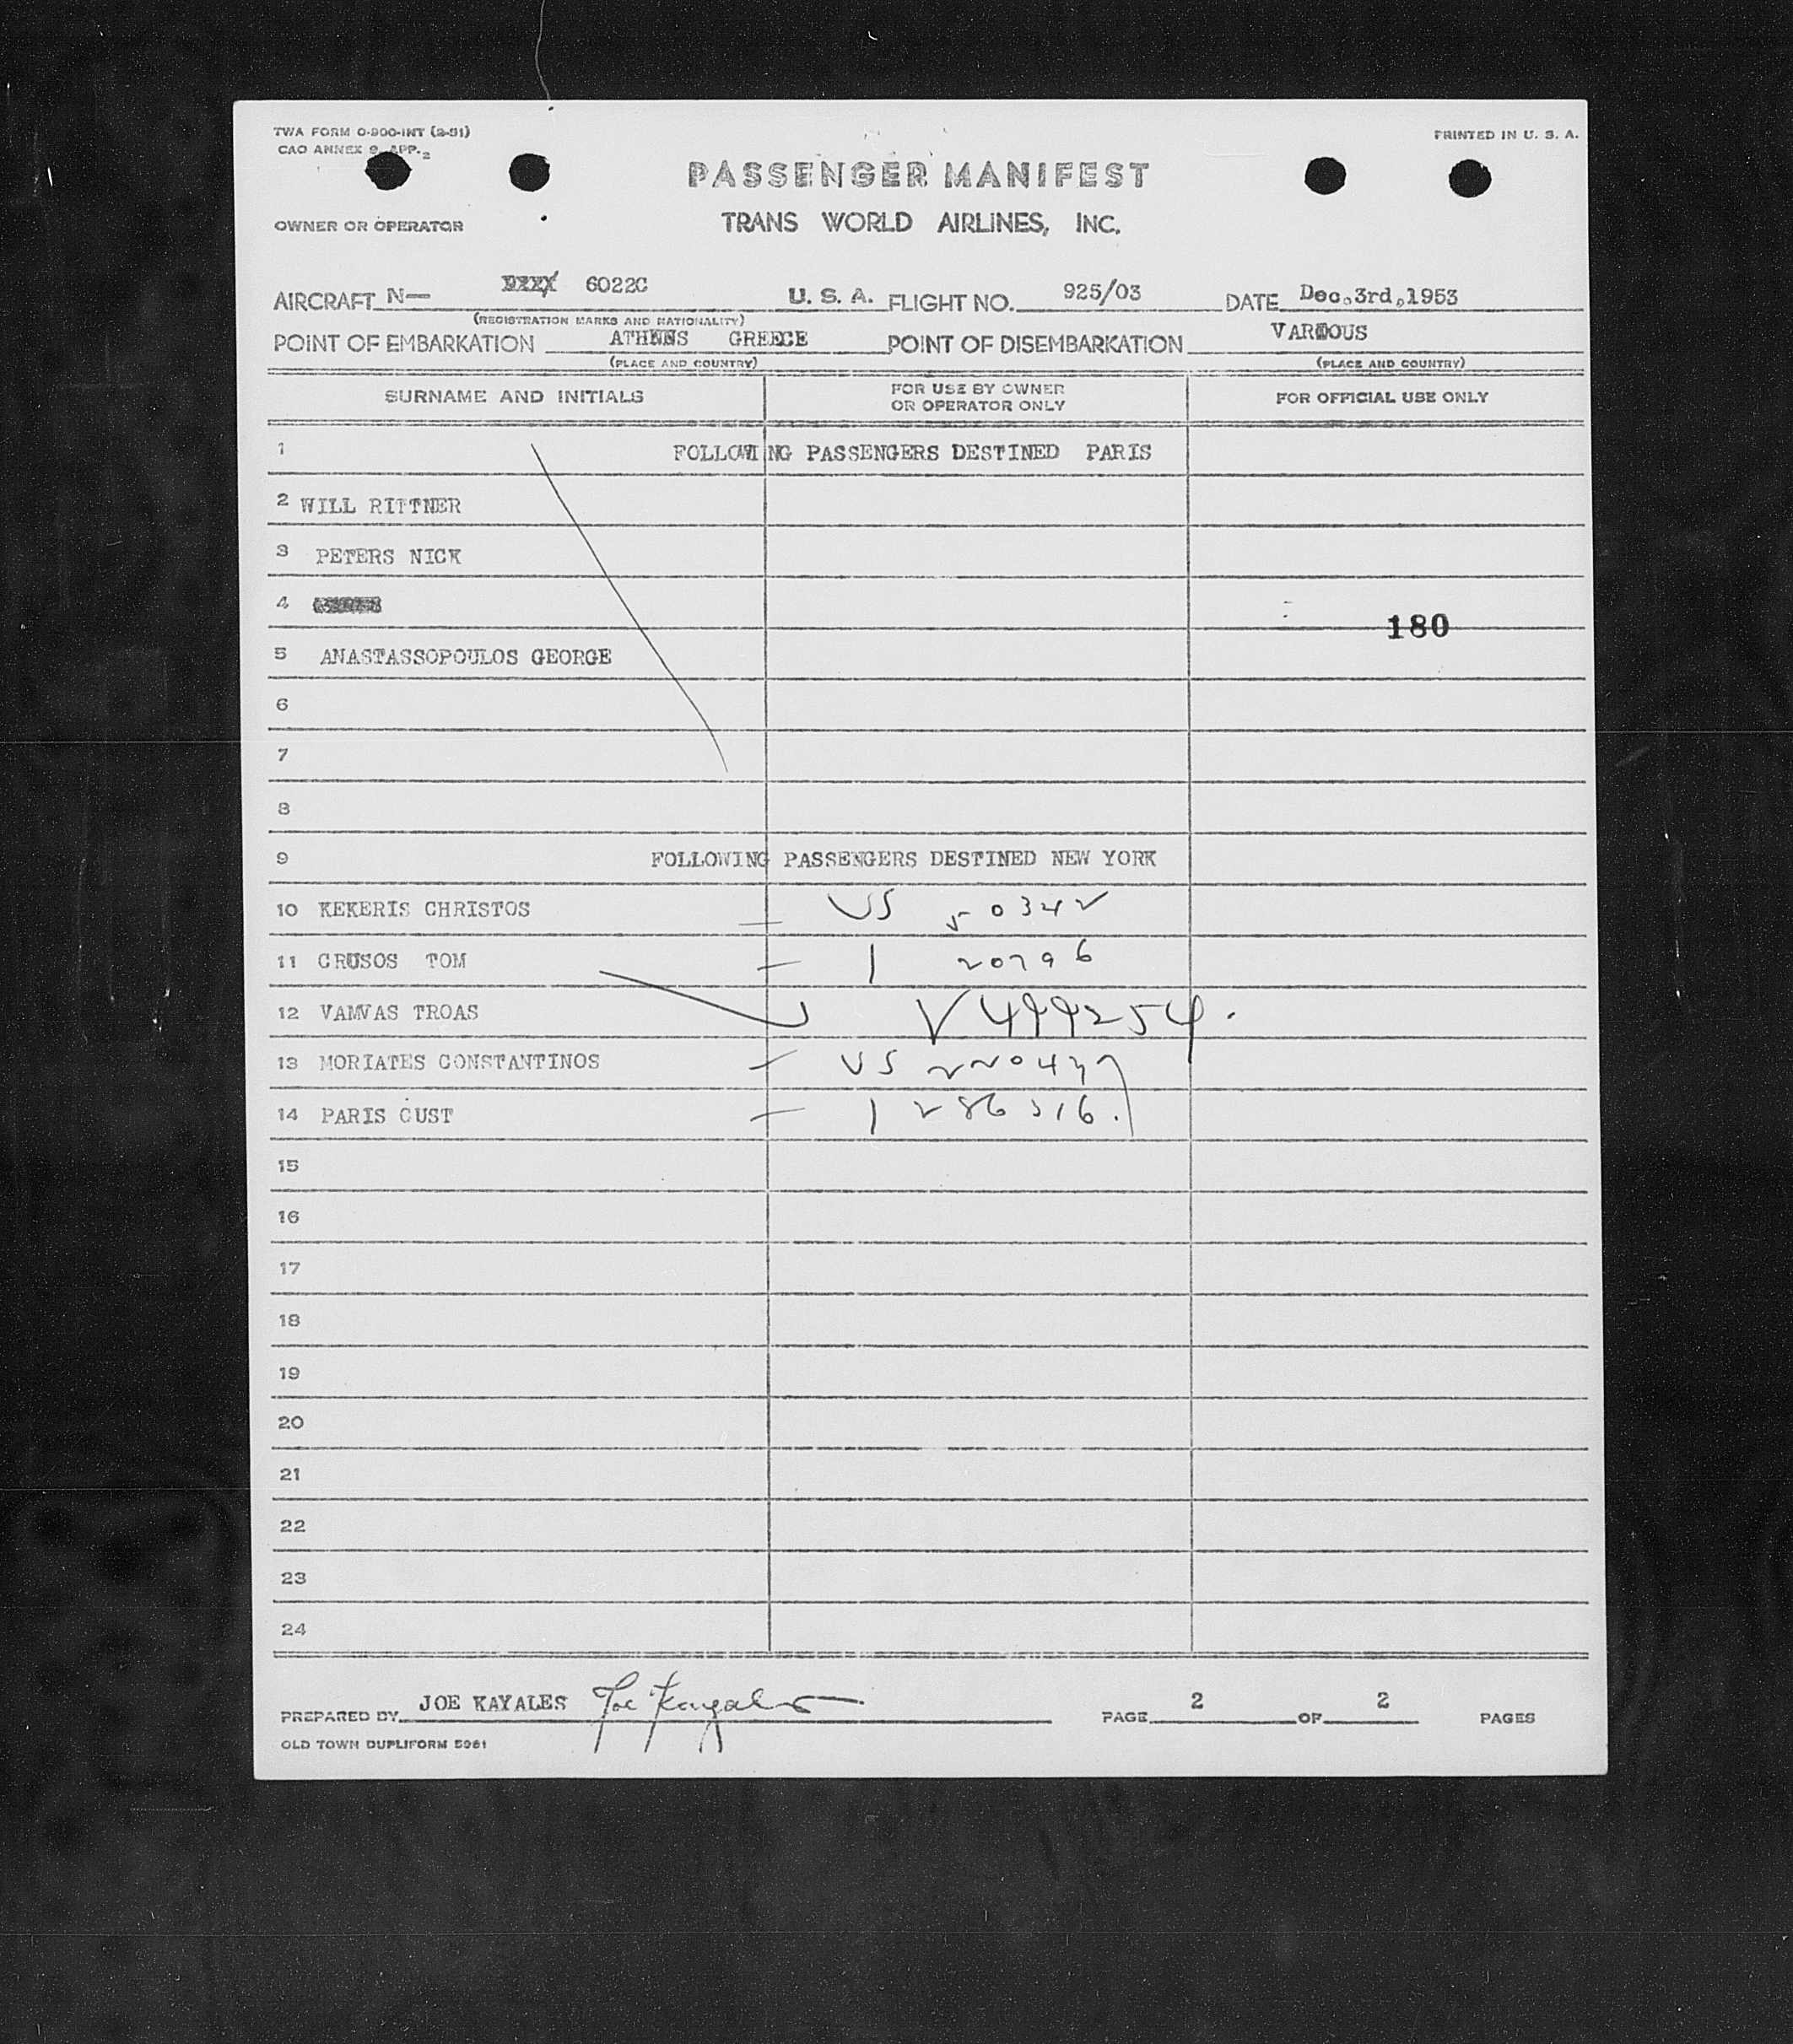 TWA FORM O-900-INT (2-51)
CAO ANNEX 9 APP. 2
PRINTED IN U. S. A.
PASSENGER MANIFEST
OWNER OR OPERATOR
TRANS WORLD AIRLINES, INC.
AIRCRAFT N— 6022C U. S. A. FLIGHT NO. 925/03 DATE Dec. 3rd, 1953
(REGISTRATION MARKS AND NATIONALITY)
POINT OF EMBARKATION ATHENS GREECE POINT OF DISEMBARKATION VARIOUS
(PLACE AND COUNTRY) (PLACE AND COUNTRY)
SURNAME AND INITIALS FOR USE BY OWNER OR OPERATOR ONLY FOR OFFICIAL USE ONLY
1 FOLLOWING PASSENGERS DESTINED PARIS
2 WILL RITTNER
3 PETERS NICK
4
180
5 ANASTASSOPOULOS GEORGE
6
7
8
9 FOLLOWING PASSENGERS DESTINED NEW YORK
10 KEKERIS CHRISTOS — US 50342
11 CRUSOS TOM — 1 20796
12 VAMVAS TROAS V499254.
13 MORIATES CONSTANTINOS — US
14 PARIS CUST — 1 286316.
15
16
17
18
19
20
21
22
23
24
PREPARED BY JOE KAYALES Joe Kayales PAGE 2 OF 2 PAGES
OLD TOWN DUPLIFORM 5961